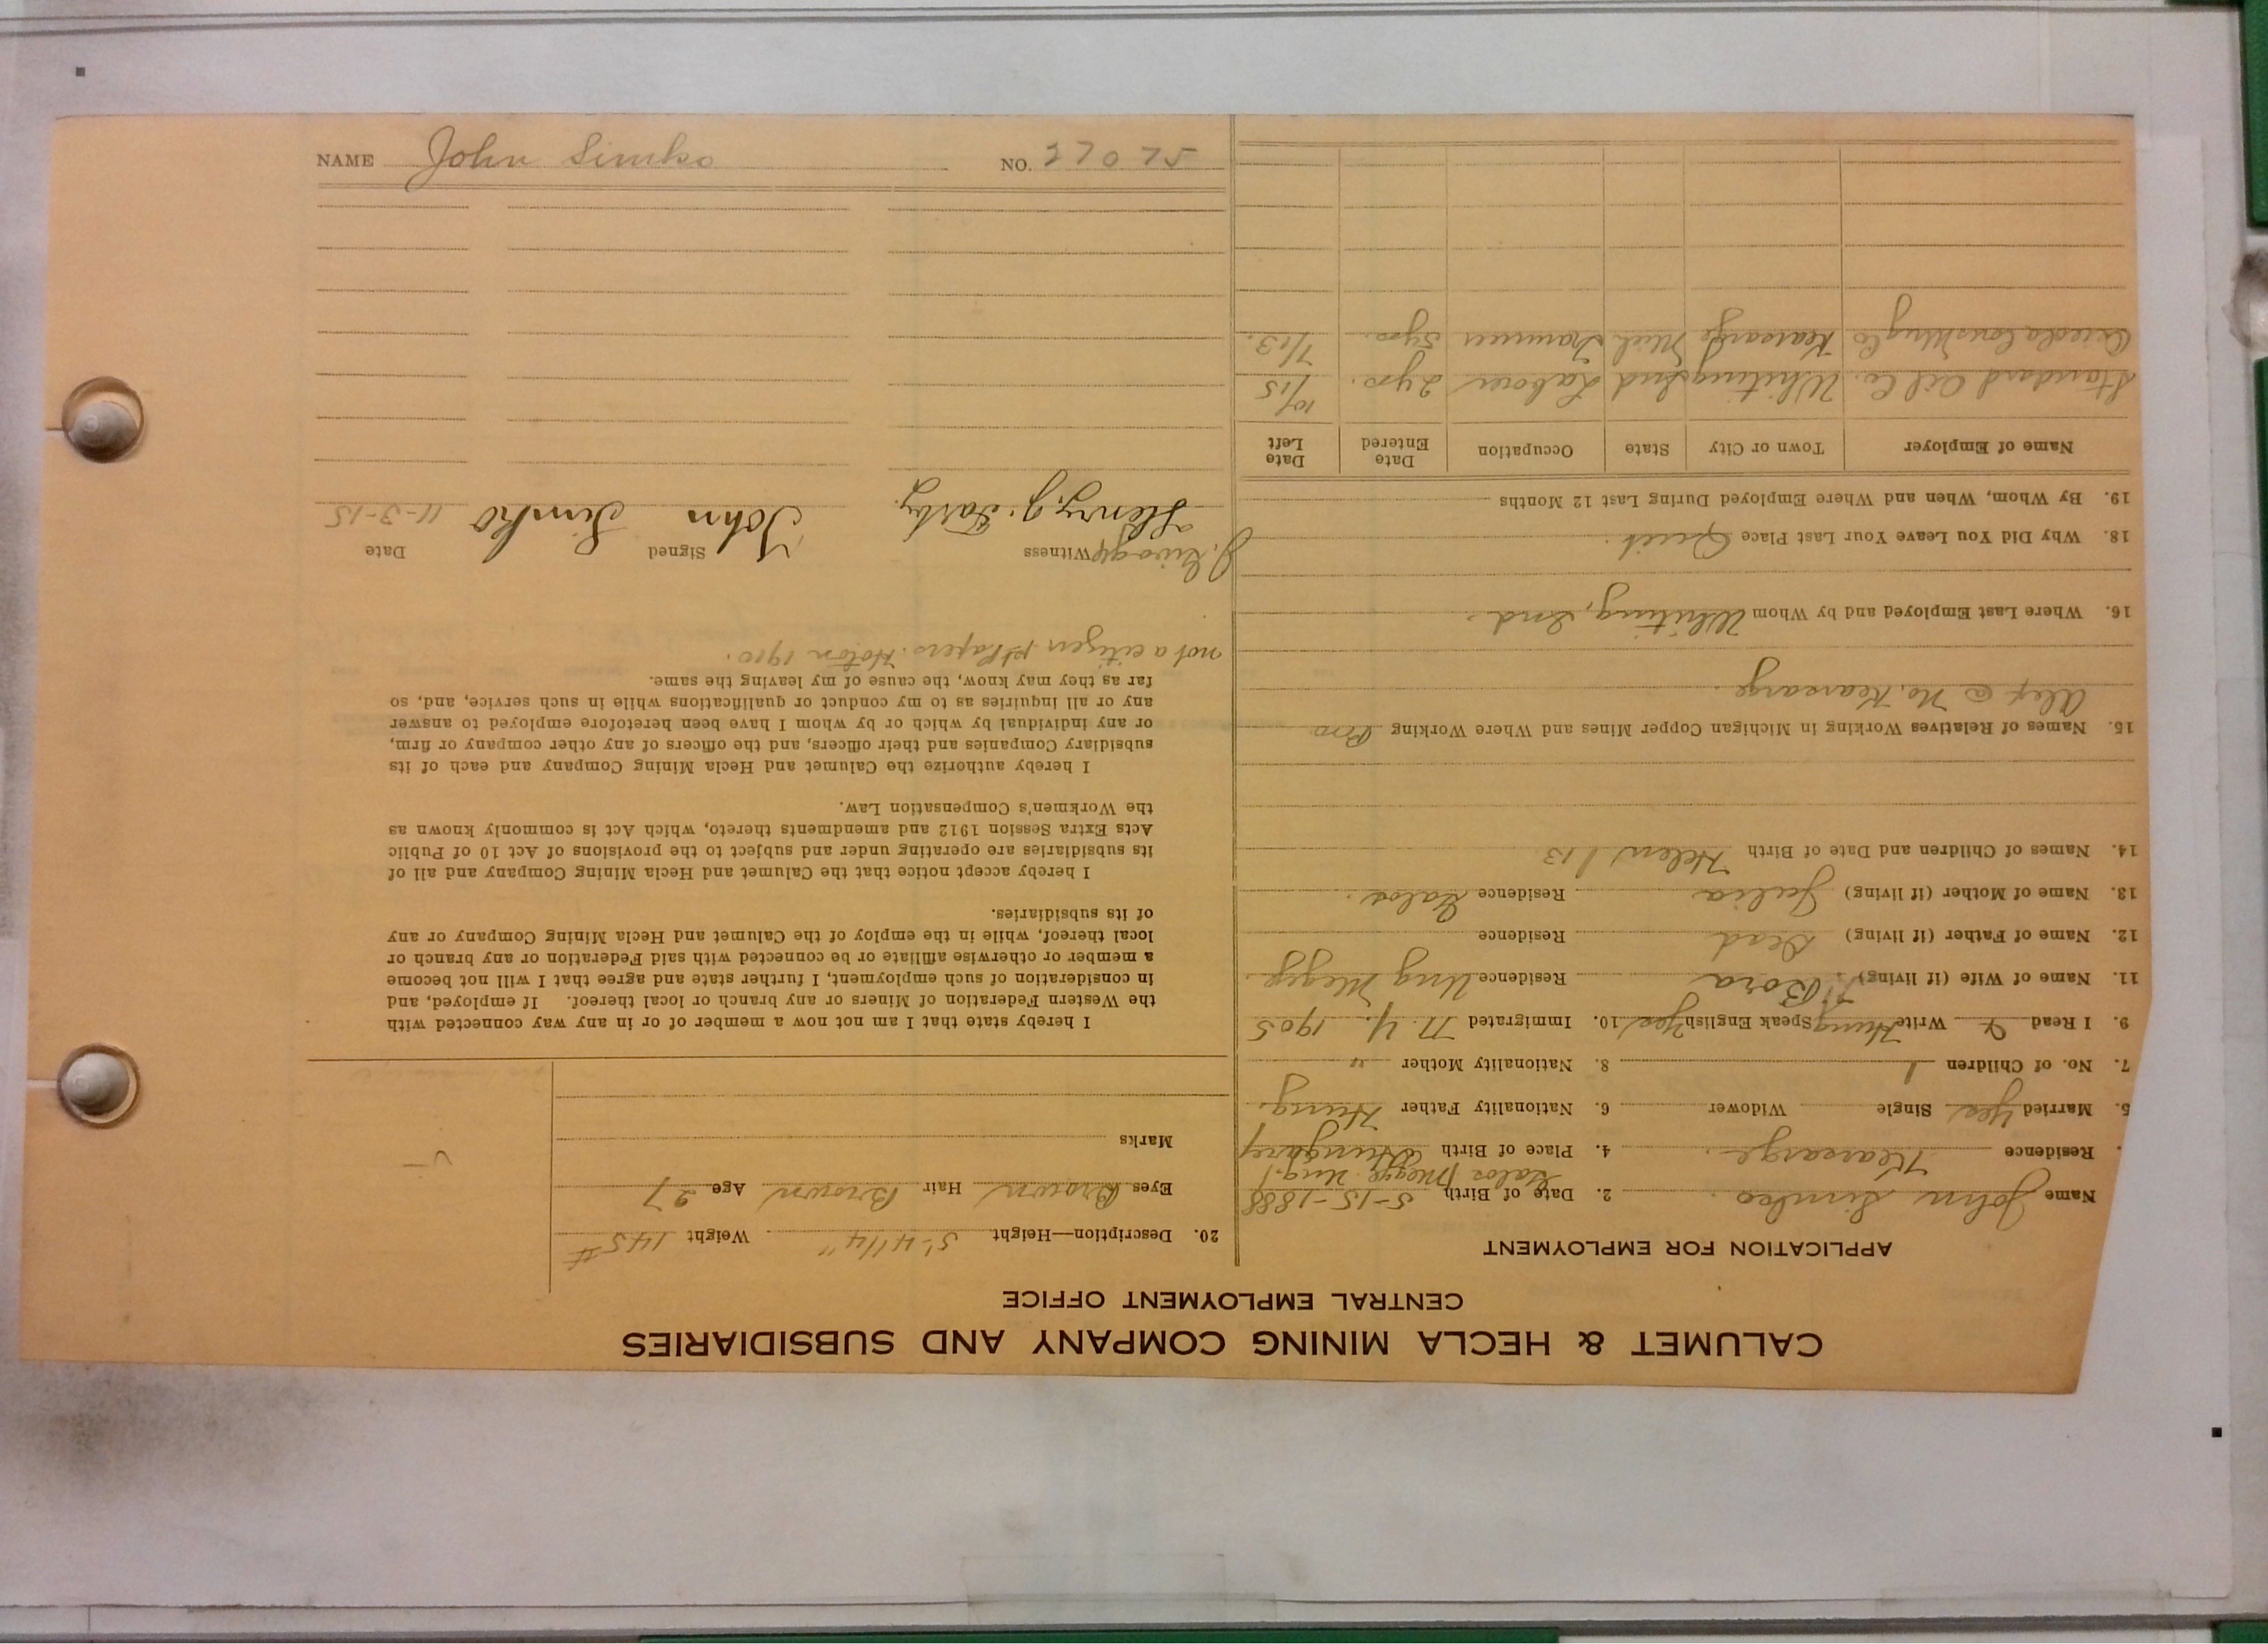 CALUMET & HECLA MINING COMPANY AND SUBSIDIARIES
CENTRAL EMPLOYMENT OFFICE
APPLICATION FOR EMPLOYMENT
Name John Simko. 2. Date of Birth 5-15-1888
Residence Kearsarge. 4. Place of Birth Hungary
5. Married Yes Single Widower 6. Nationality Father Hung.
7. No. of Children 1 8. Nationality Mother "
9. I Read & Write Hung Speak English Yes 10. Immigrated N.Y. 1905
11. Name of Wife (if living) Bora Residence Ung Megye.
12. Name of Father (if living) Dead Residence
13. Name of Mother (if living) Julia Residence
14. Names of Children and Date of Birth Helen 1 13
15. Names of Relatives Working in Michigan Copper Mines and Where Working Bro
Alex @ No. Kearsarge.
16. Where Last Employed and by Whom Whiting, Ind.
18. Why Did You Leave Your Last Place Quit.
19. By Whom, When and Where Employed During Last 12 Months
Name of Employer Town or City State Occupation Date Entered Date Left
Standard Oil Co. Whiting Ind Laborer 2 yrs. 10/15
Osceola Cons Mng Co Kearsarge Mich Trammer 5 yrs. 7/13.
20. Description—Height 5'-4 1/4" Weight 145#
Eyes Brown Hair Brown Age 27
Marks
I hereby state that I am not now a member of or in any way connected with
the Western Federation of Miners or any branch or local thereof. If employed, and
in consideration of such employment, I further state and agree that I will not become
a member or otherwise affiliate or be connected with said Federation or any branch or
local thereof, while in the employ of the Calumet and Hecla Mining Company or any
of its subsidiaries.
I hereby accept notice that the Calumet and Hecla Mining Company and all of
its subsidiaries are operating under and subject to the provisions of Act 10 of Public
Acts Extra Session 1912 and amendments thereto, which Act is commonly known as
the Workmen's Compensation Law.
I hereby authorize the Calumet and Hecla Mining Company and each of its
subsidiary Companies and their officers, and the officers of any other company or firm,
or any individual by which or by whom I have been heretofore employed to answer
any or all inquiries as to my conduct or qualifications while in such service, and, so
far as they may know, the cause of my leaving the same.
not a citizen 1st Papers. 1910.
Witness Signed Date
Henry J. John Simko 11-3-15
NAME John Simko NO. 27075